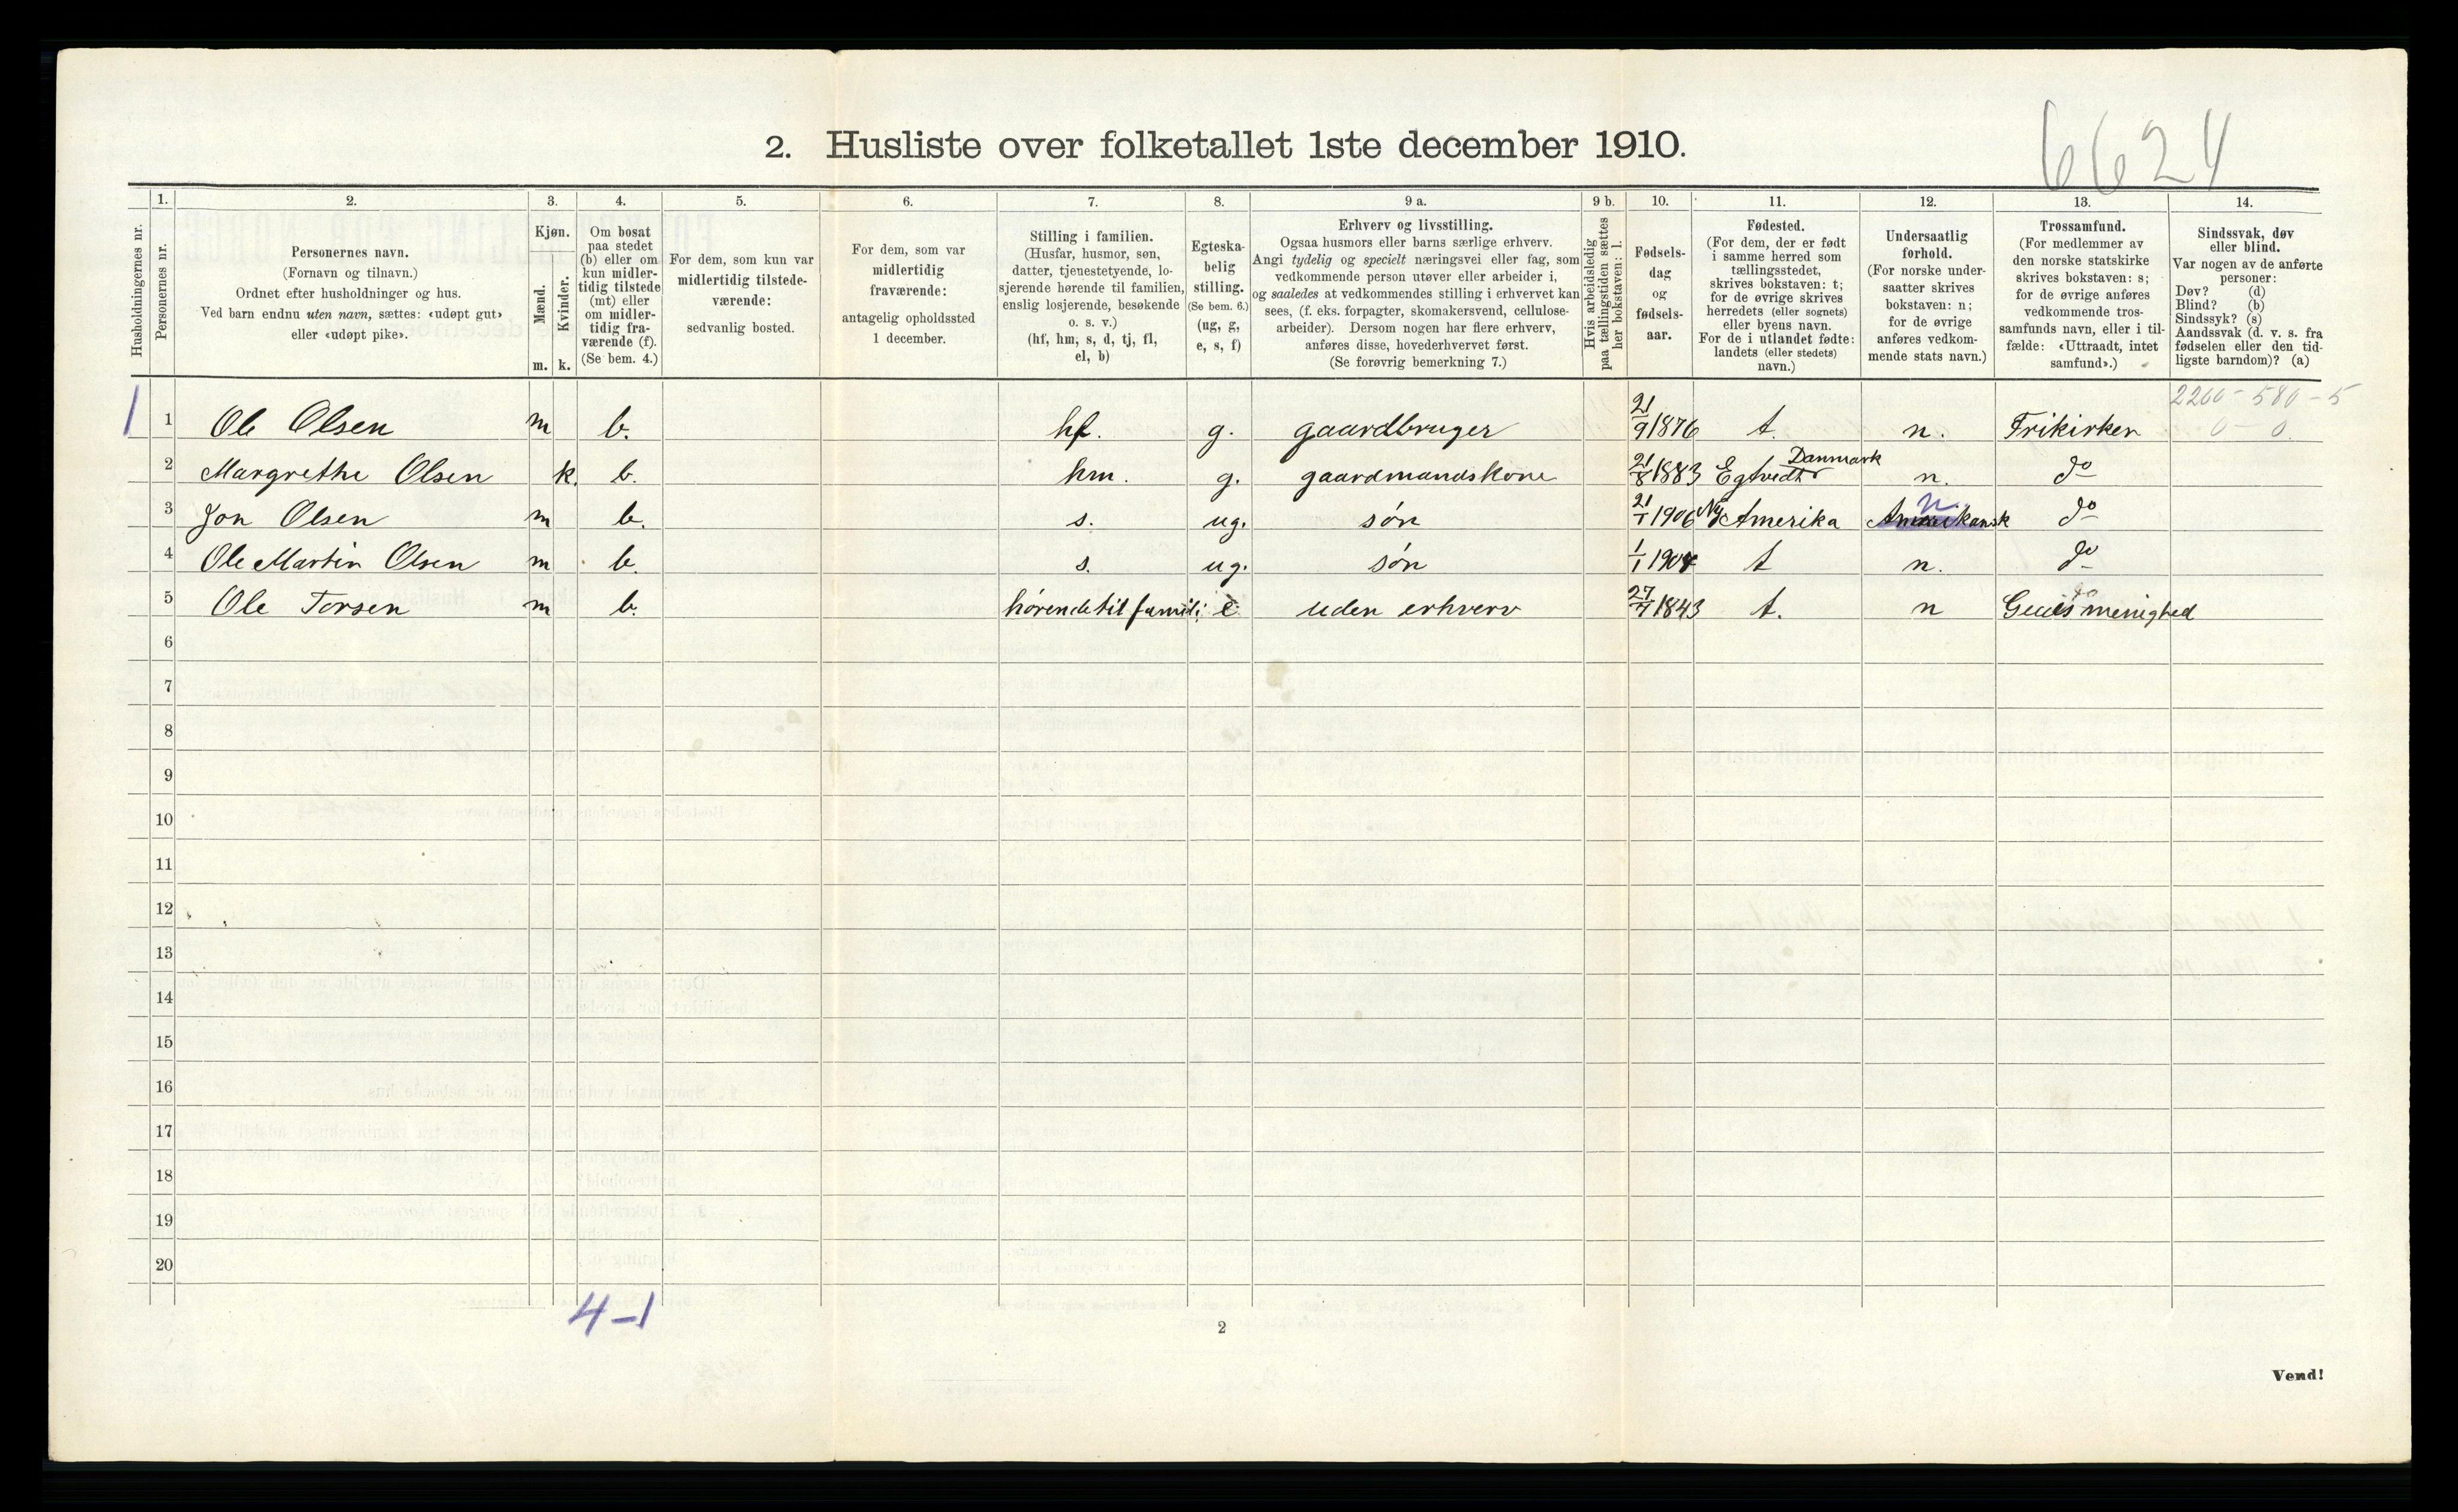 6624
2. Husliste over folketallet 1ste december 1910.
1. 2. 3. 4. 5. 6. 7. 8. 9 a. 9 b. 10. 11. 12. 13. 14.
Husholdningernes nr.
Personernes nr.
Personernes navn.
(Fornavn og tilnavn.)
Ordnet efter husholdninger og hus.
Ved barn endnu uten navn, sættes: «udøpt gut»
eller «udøpt pike».
Kjøn.
Mænd.
Kvinder.
m. k.
Om bosat
paa stedet
(b) eller om
kun midler-
tidig tilstede
(mt) eller
om midler-
tidig fra-
værende (f).
(Se bem. 4.)
For dem, som kun var
midlertidig tilstede-
værende:
sedvanlig bosted.
For dem, som var
midlertidig
fraværende:
antagelig opholdssted
1 december.
Stilling i familien.
(Husfar, husmor, søn,
datter, tjenestetyende, lo-
sjerende hørende til familien,
enslig losjerende, besøkende
o. s. v.)
(hf, hm, s, d, tj, fl,
el, b)
Egteska-
belig
stilling.
(Se bem. 6.)
(ug, g,
e, s, f)
Erhverv og livsstilling.
Ogsaa husmors eller barns særlige erhverv.
Angi tydelig og specielt næringsvei eller fag, som
vedkommende person utøver eller arbeider i,
og saaledes at vedkommendes stilling i erhvervet kan
sees, (f. eks. forpagter, skomakersvend, cellulose-
arbeider). Dersom nogen har flere erhverv,
anføres disse, hovederhvervet først.
(Se forøvrig bemerkning 7.)
Hvis arbeidsledig
paa tællingstiden sættes
her bokstaven: l.
Fødsels-
dag
og
fødsels-
aar.
Fødested.
(For dem, der er født
i samme herred som
tællingsstedet,
skrives bokstaven: t;
for de øvrige skrives
herredets (eller sognets)
eller byens navn.
For de i utlandet fødte:
landets (eller stedets)
navn.)
Undersaatlig
forhold.
(For norske under-
saatter skrives
bokstaven: n;
for de øvrige
anføres vedkom-
mende stats navn.)
Trossamfund.
(For medlemmer av
den norske statskirke
skrives bokstaven: s;
for de øvrige anføres
vedkommende tros-
samfunds navn, eller i til-
fælde: «Uttraadt, intet
samfund».)
Sindssvak, døv
eller blind.
Var nogen av de anførte
personer:
Døv? (d)
Blind? (b)
Sindssyk? (s)
Aandssvak (d. v. s. fra
fødselen eller den tid-
ligste barndom)? (a)
2200 - 580 - 5
0 - 0
1 1 Ole Olsen m b. hf. g. gaardbruger 21/9 1876 t. n. Frikirken
2 Margrethe Olsen k. b. hm. g. gaardmandskone 21/8 1883 Egtvedt Danmark n. do
3 Jon Olsen m b. s. ug. søn 21/1 1906 Ny Amerika Amerikansk n. do
4 Ole Martin Olsen m b. s. ug. søn 1/1 190 t n. do
5 Ole Torsen m b. hørende til famili e uden erhverv 27/7 1843 t. n menighed
6
7
8
9
10
11
12
13
14
15
16
17
18
19
20
4-1
2
Vend!